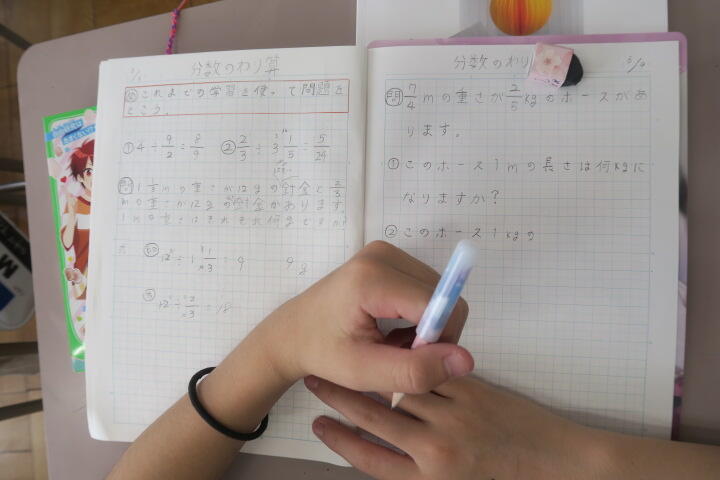 分数のわり算
めこれまでの学習を使って問題を
とこう。
① 4÷9/2=8/9 ② 2/3÷3 1/5=5/24
問 1 1/3mの重さが12gの針金と2/3
mの重さが12gの針金があります。
1mの重さはそれぞれ何gですか
12÷1 1/3=9 9g
12÷2/3=18
分数のわり
問 7/4mの重さが2/5kgのホースがあ
ります。
①このホース1mの長さは何kgに
なりますか?
②このホース1kgの